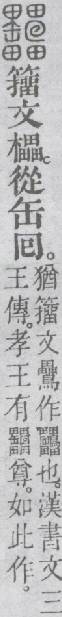 籒文櫑。從缶回。
猶籒文鸓作也。漢書文三
王傳。孝王有尊。如此作。